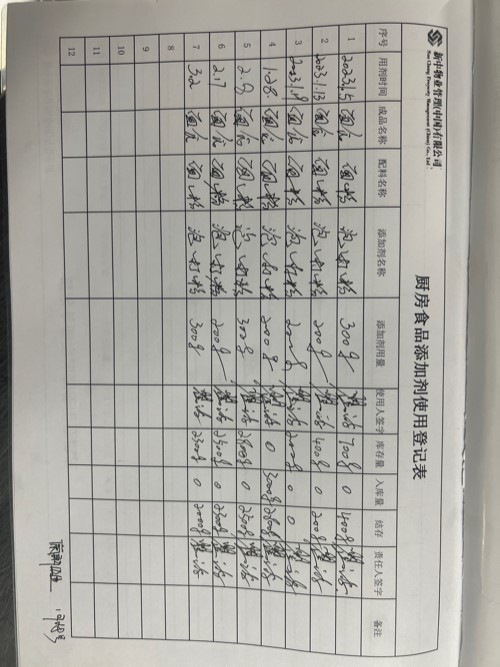 新中物业管理(中国)有限公司
Sun Chung Property Management (China) Co., Ltd.
厨房食品添加剂使用登记表
序号 用剂时间 成品名称 配料名称 添加剂名称 添加剂用量 使用人签字 库存量 入库量 结存 责任人签字 备注
1 2023.1.5 面食 面粉 泡打粉 300g 700g 0 400g
2 2023.1.13 面食 面粉 泡打粉 200g 400g 0 200g
3 2023.1.19 面食 面粉 泡打粉 200g 200g 0 0
4 1.28 面食 面粉 泡打粉 200g 0 3000g 2800g
5 2.9 面食 面粉 泡打粉 300g 2800g 0 2500g
6 2.17 面食 面粉 泡打粉 200g 2500g 0 2300g
7 3.2 面食 面粉 泡打粉 300g 2300g 0 2000g
8
9
10
11
12